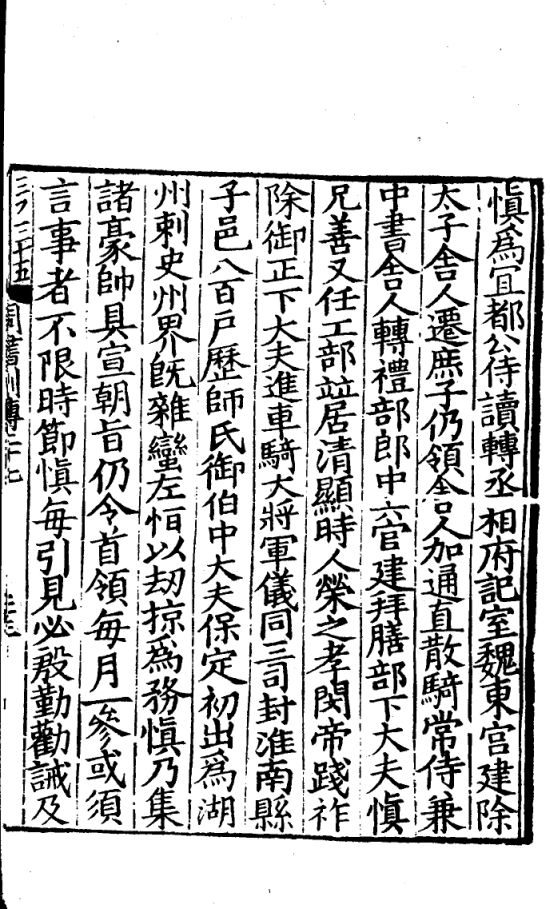 慎爲宜都公侍讀轉丞相府記室魏東宮建除
太子舍人遷庶子仍領舍人加通直散騎常侍兼
中書舍人轉禮部郎中六官建拜膳部下大夫慎
兄善又任工部並居清顯時人榮之孝閔帝踐祚
除御正下大夫進車騎大將軍儀同三司封淮南縣
子邑八百戸歷師氏御伯中大夫保定初出爲湖
州刺史州界旣雜蠻左恒以刼掠爲務慎乃集
諸豪帥具宣朝旨仍令首領每月一參或須
言事者不限時節慎每引見必殷勤勸誡及
周書列傳二十七